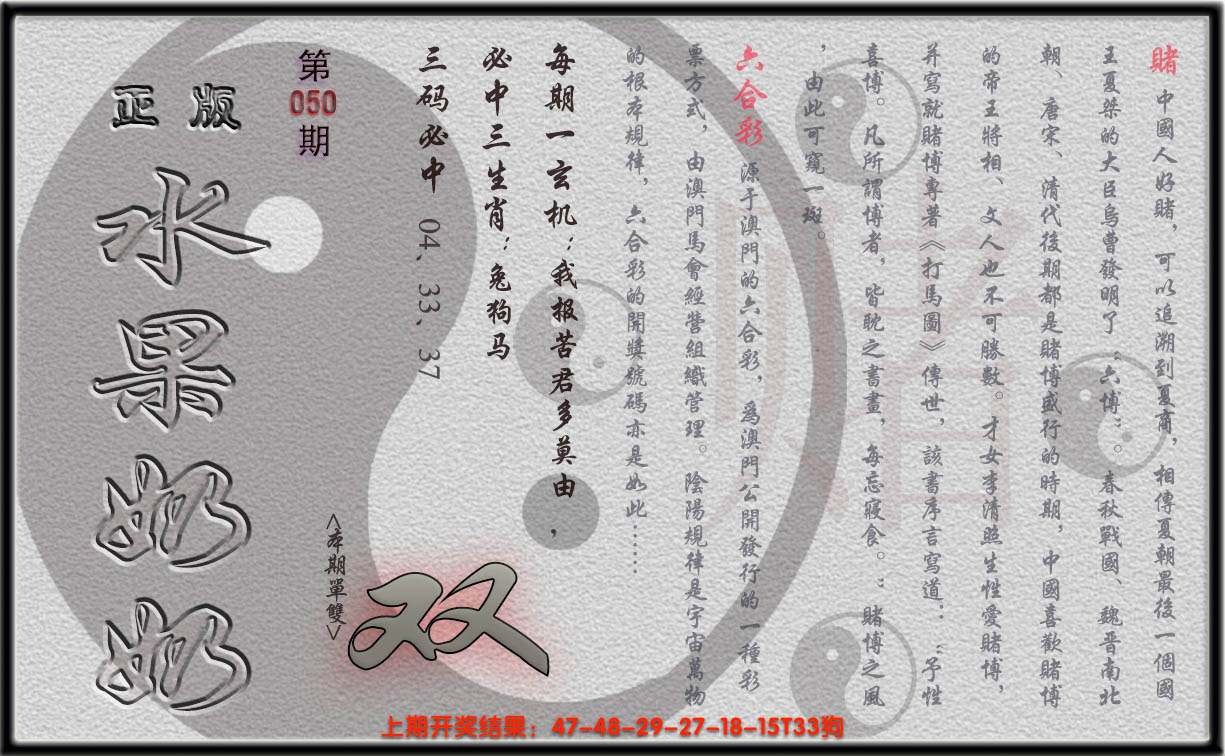 賭 中國人好賭，可以追溯到夏商，相傳夏朝最後一個國
王夏桀的大臣烏曹發明了“六博”。春秋戰國、魏晋南北
朝、唐宋、清代後期都是賭博盛行的時期，中國喜歡賭博
的帝王將相、文人也不可勝數。才女李清照生性愛賭博，
并寫就賭博專著《打馬圖》傳世，該書序言寫道：“予性
喜博。凡所謂博者，皆耽之書晝，每忘寢食。”賭博之風
，由此可窺一斑。
六合彩 源于澳門的六合彩，爲澳門公開發行的一種彩
票方式，由澳門馬會經營組織管理。陰陽規律是宇宙萬物
的根本規律，六合彩的開獎號碼亦是如此……
每期一玄机：我报苦君多莫由，
必中三生肖：兔狗马
三码必中 04、33、37
第
050
期
<本期單雙>
双
正版
水果奶奶
賭
上期开奖结果：47-48-29-27-18-15T33狗